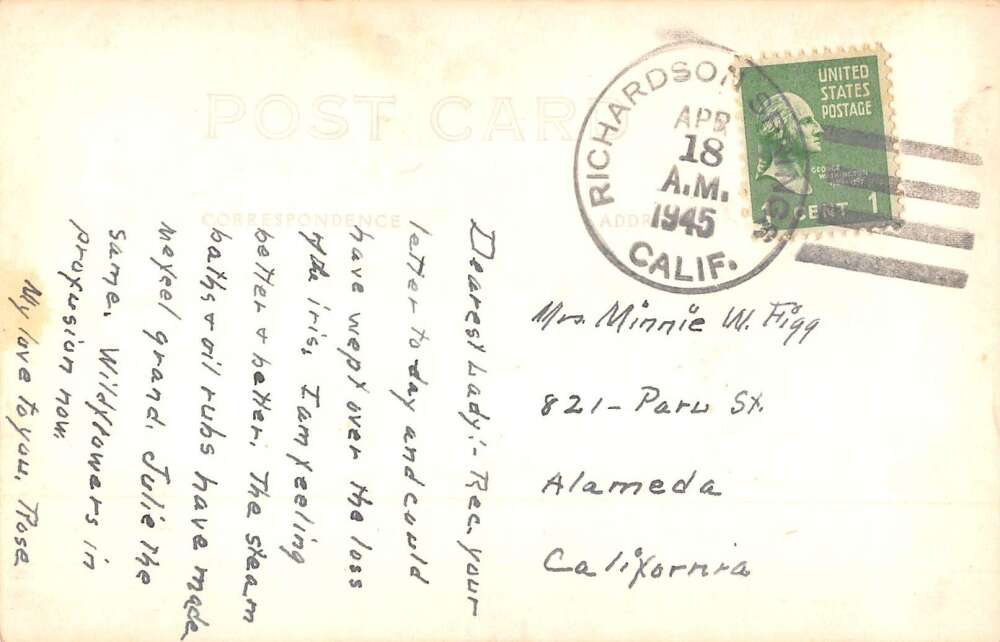 POST CARD
CORRESPONDENCE
ADDR
RICHARDSON SPRINGS
APR
18
A.M.
1945
CALIF.
UNITED
STATES
POSTAGE
GEORGE
WASHINGTON
1 CENT 1
Dearest Lady:- Rec. your
letter to-day and could
have wept over the loss
iris. I am feeling
better & better. The steam
baths & oil rubs have made
me feel grand. Julie the
same. Wildflowers in
profusion now.
My love to you, Rose
Mrs. Minnie W. Figg
821- Paru St.
Alameda
California